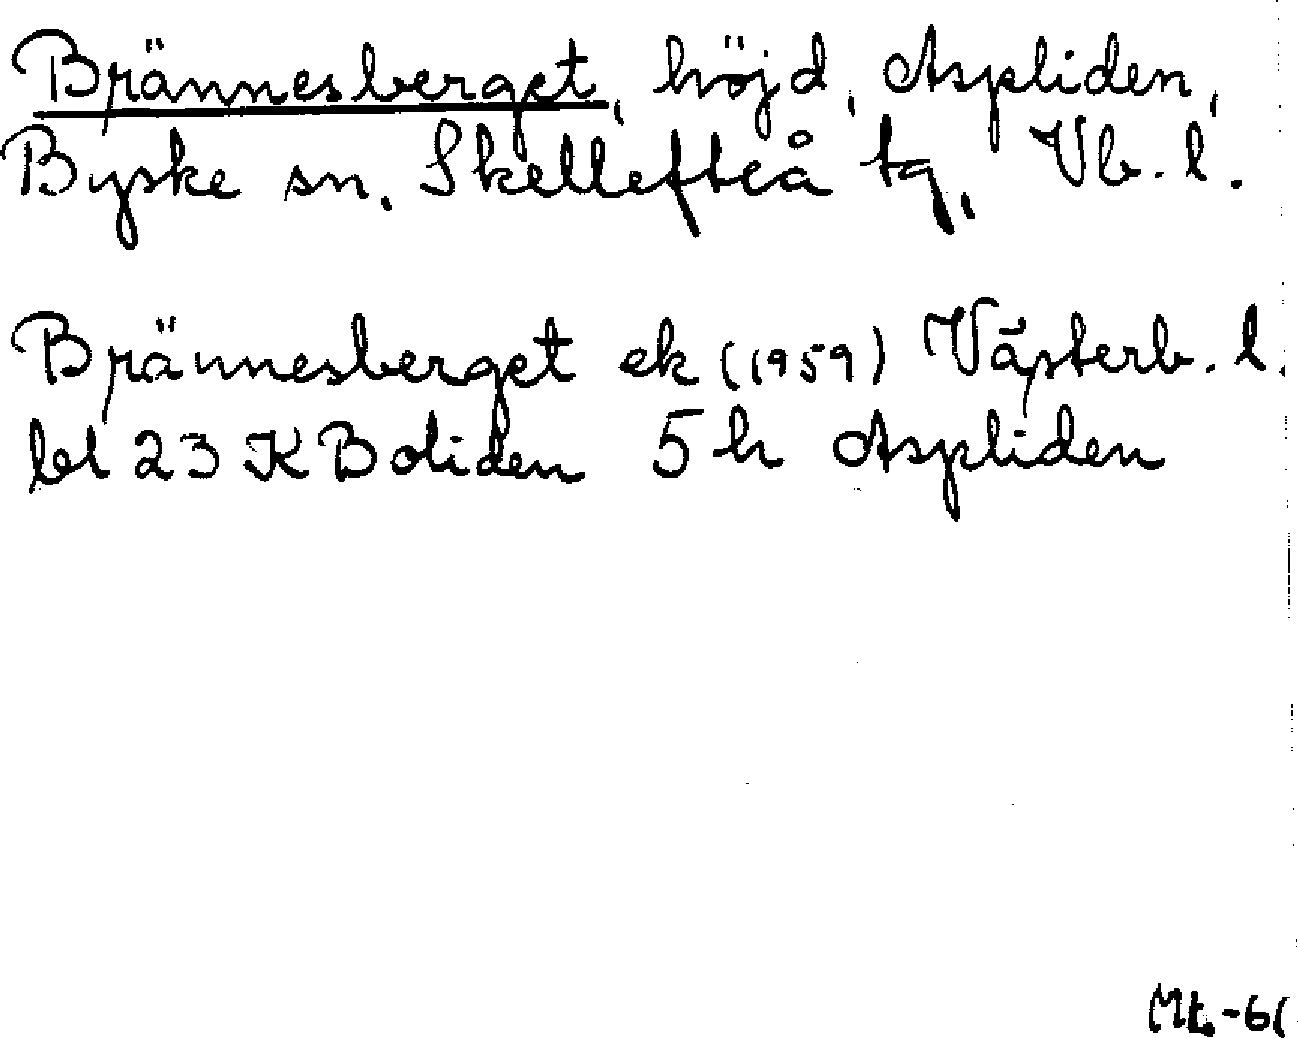 Brännesberget, höjd, Aspliden,
Byske sn, Skellefteå tg, Vb. l.
Brännesberget ek (1959) Västerb. l.
bl 23 K Boliden 5 h Aspliden
Mt.-61